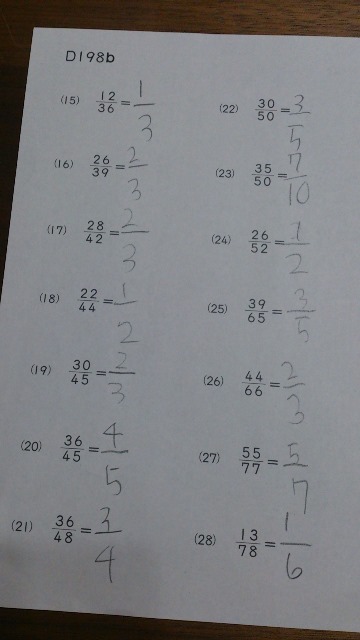 D198b
(15) 12/36 = 1/3
(16) 26/39 = 2/3
(17) 28/42 = 2/3
(18) 22/44 = 1/2
(19) 30/45 = 2/3
(20) 36/45 = 4/5
(21) 36/48 = 3/4
(22) 30/50 = 3/5
(23) 35/50 = 7/10
(24) 26/52 = 1/2
(25) 39/65 = 3/5
(26) 44/66 = 2/3
(27) 55/77 = 5/7
(28) 13/78 = 1/6